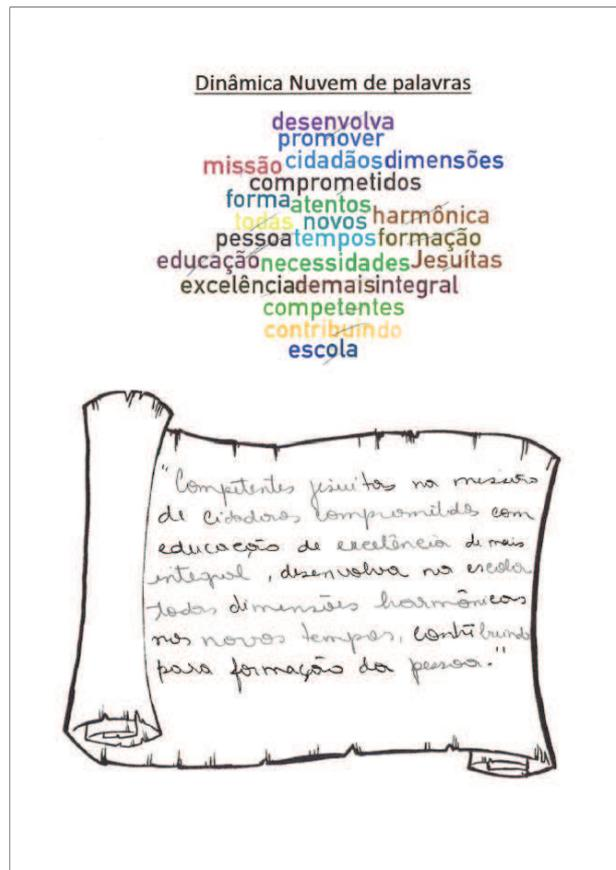 Dinâmica Nuvem de palavras
desenvolva
promover
missão cidadãos dimensões
comprometidos
forma atentos
todas novos harmônica
pessoa tempos formação
educação necessidades Jesuítas
excelência demais integral
competentes
contribuindo
escola
"Competentes jesuitas na missão
de cidadãos comprometidos com
educação de excelência demais
integral, desenvolva na escola
todas dimensões harmônicas
nos novos tempos, contribuindo
para formação da pessoa."